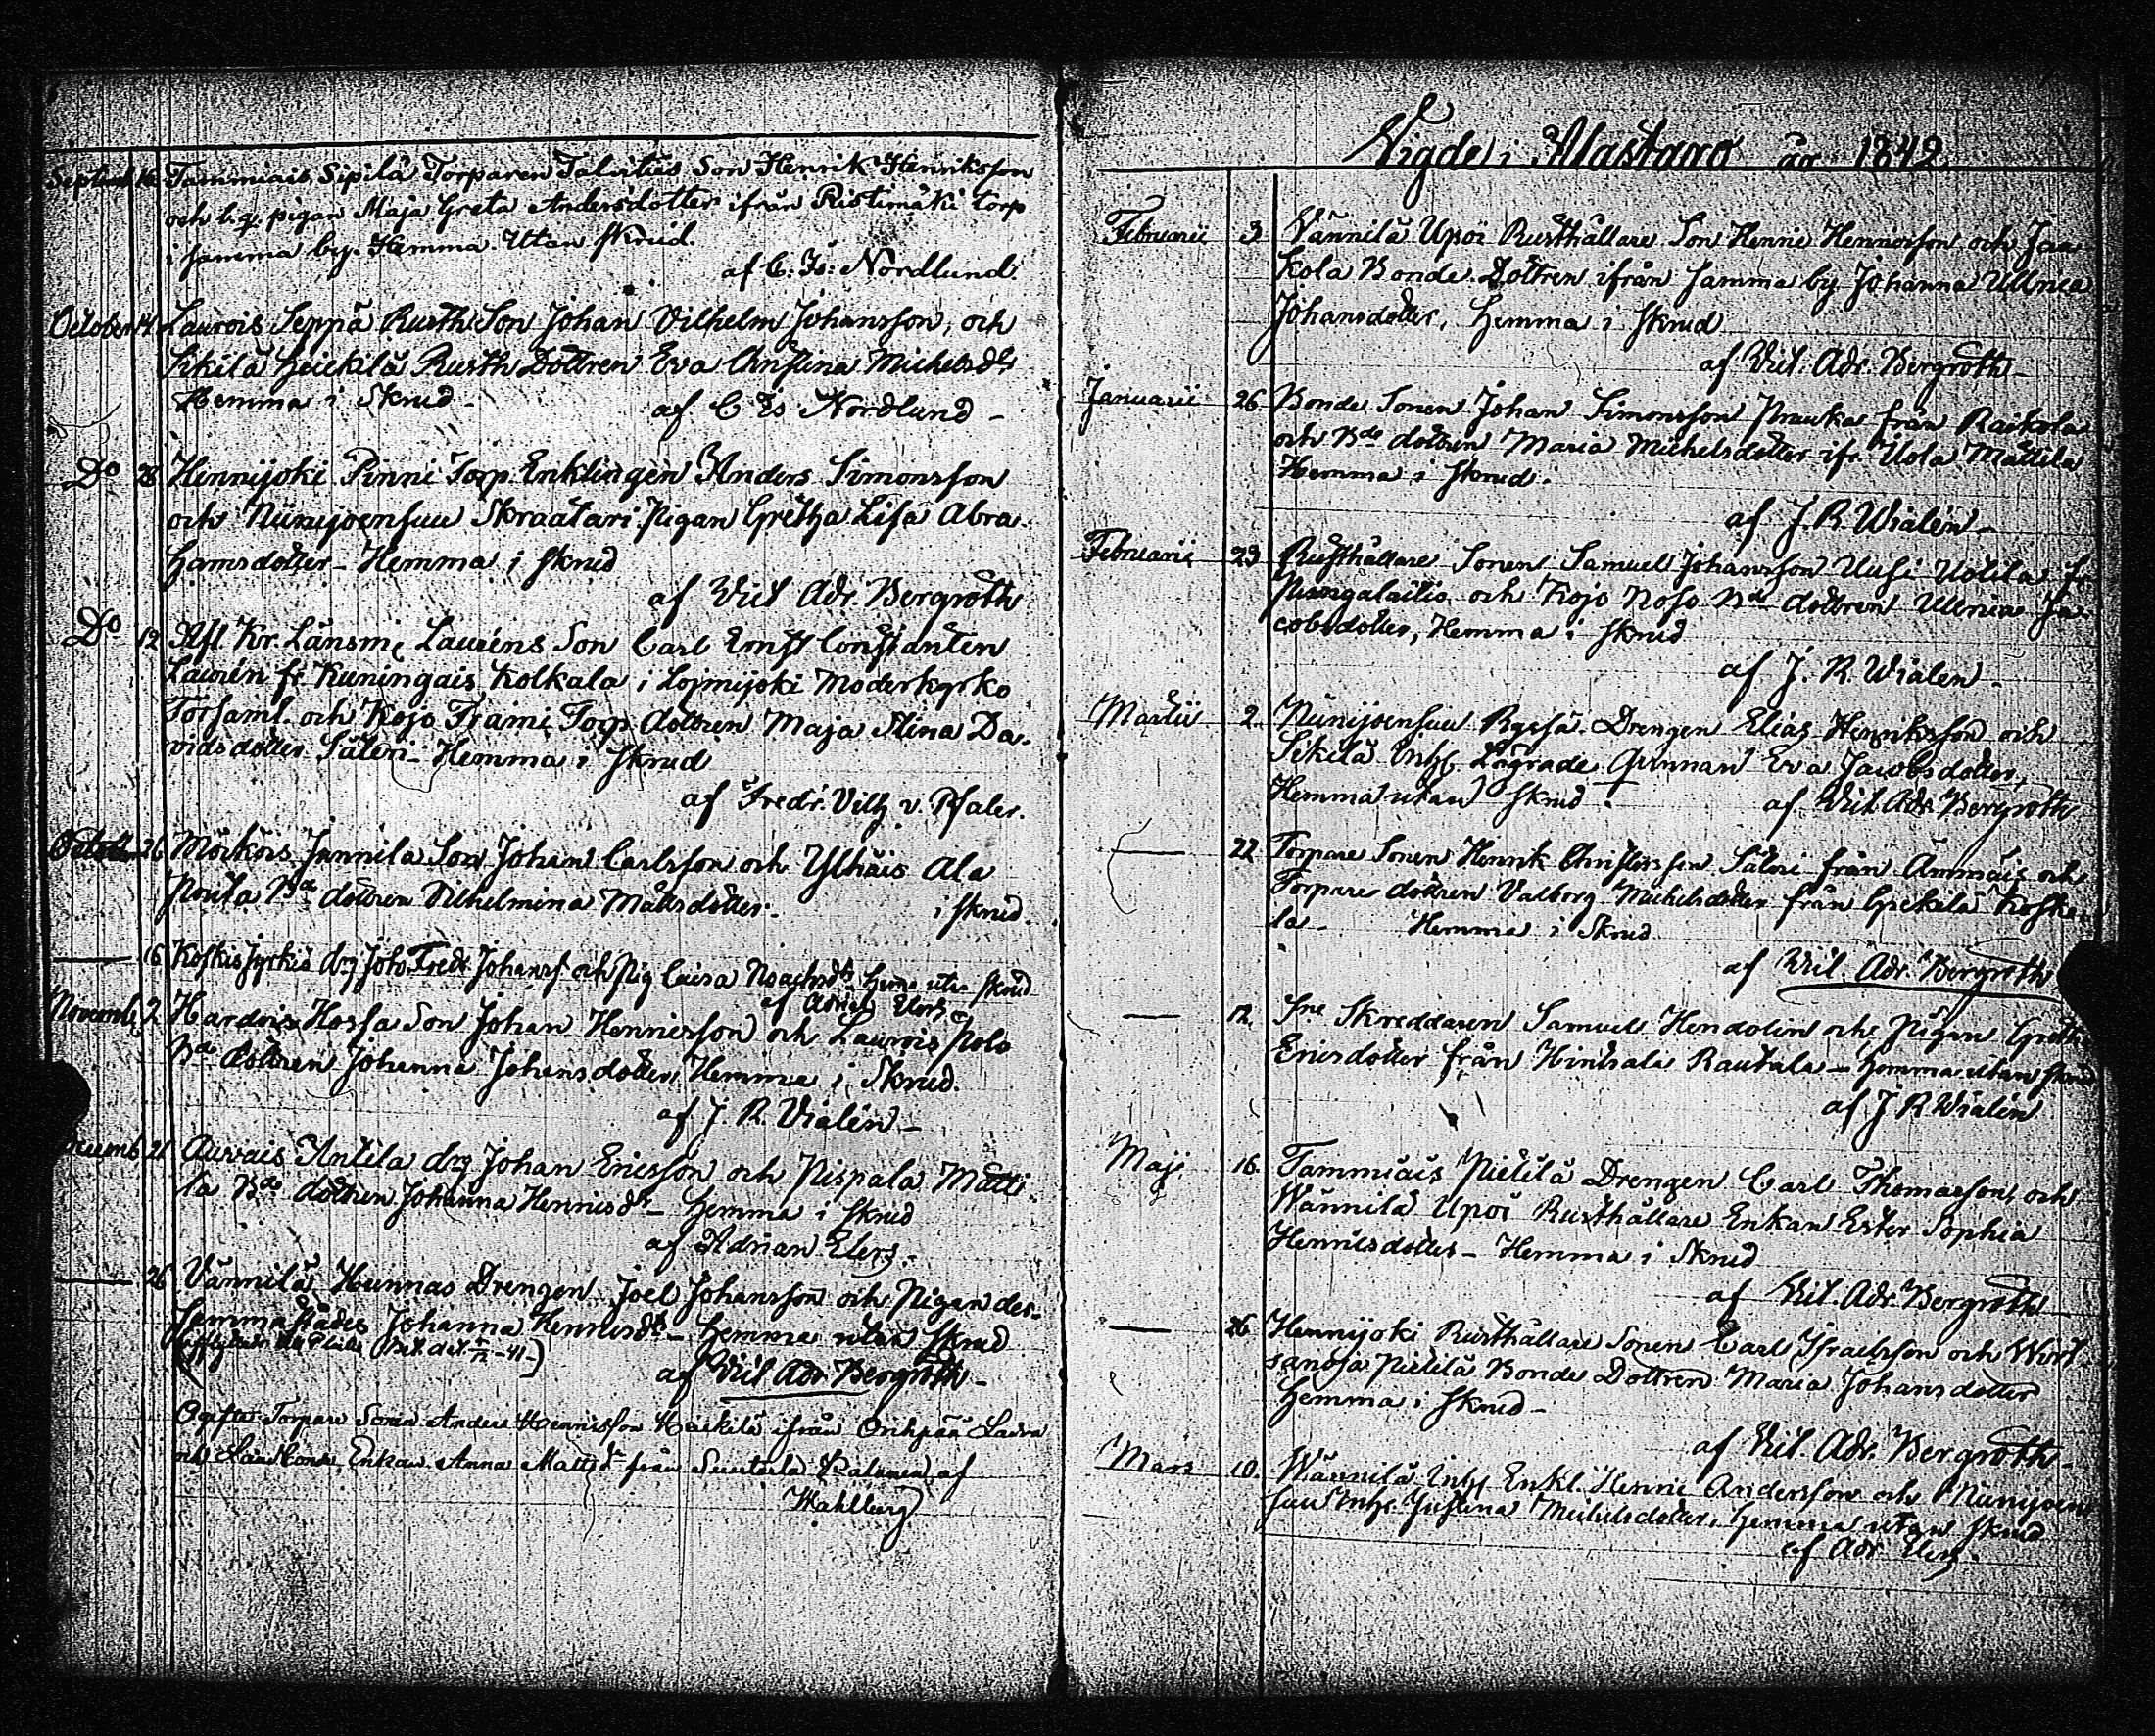 Septemb 16 Tammiais Sipilä Torparen Talvities Son Henrik Henriksson
och h. q. pigan Maja Greta Andersdotter ifrån Ristimäki torp
i samma by. Hemma. Utan skrud.
af C. Fr: Nordlund.
October 14 Laurois Seppä Rusth Son Johan Vilhelm Johansson, och
Sikilä Heickilä Rusth Dottren Eva Christina Michelsdr
Hemma i Skrud -
af C Fr Nordlund -
Do 28 Hennijoki Pinni Torp. Enklingen Anders Simonsson
och Niinijoensuu Skraatari Pigan Gretha Lisa Abra-
hamsdotter - Hemma i skrud
af Vil Adr. Bergroth
Do 12 Afl. Kr. Länsm Lauréns Son Carl Ernst Constantin
Laurén fr. Kuningais Kolkala i Lojmijoki Moderkyrko
Församl. och Kojo Frami Torp dottren Maja Stina Da-
vidsdotter Säteri - Hemma i Skrud
af Fredr. Vilh v. Pfaler.
October 26 Mörköis Junnila Son Johan Carlsson och Ylhäis Ala
Nouta Bde dottren Vilhelmina Mattsdotter - i skrud.
— 16 Koskis Jyrkis drg Joh. Fredr Johanss. och Pig Caisa Noachsdr hema utan skrud
af Adrian Elers
Novemb. 2 Hardois Hossa Son Johan Hennirsson och Laurois Polo
Bde Dottren Johanna Johansdotter, Hemma i Skrud.
af J. R. Vialén -
Decemb 21 Aurvais Antila drg Johan Ericsson och Pispala Matti-
la Bde dottren Johanna Hennisdr - hemma i skrud
af Adrian Elers.
— 26 Vännilä Hunnas Drengen Joel Johansson och Pigan der-
hemmastädes Johanna Henrisdr - hemma utan skrud
af Vil Adr Bergroth -
Ogifte Torpare Sonen Anders Hennisson Heikilä ifrån Orihpää Ladra
och Landbonde Enkan Anna Mattsdr från Suutarla af
Wahlberg
Vigde i Alastaro år 1842
Februarii 3 Vännilä Upoi Rusthållare Son Henric Hennirsson och Jaa-
kola Bonde Dottren ifrån samma by Johanna Ullrica
Johansdotter, hemma i skrud
af Vil. Adr. Bergroth -
Januarii 26 Bonde Sonen Johan Simonsson Prauka från Raikola
och Bde dottren Maria Michelsdotter ifr. Uola Mattila
Hemma i skrud.
af J. R. Wialén -
Februarii 23 Rusthållare Sonen Samuel Johansson Uusi Uotila fr
Pungalaitio och Kojo Noso Bde dottren Ullrica Ja-
cobsdotter, Hemma i skrud
af J. R. Wialen -
Martii 2 Niinijoensuu Ryssä Drengen Elias Henriksson och
Sikilä Inh. Lägrade Qvinnan Eva Jacobsdotter,
Hemma utan skrud.
af Vil. Adr Bergroth
— 22 Torpare Sonen Henrik Christersson Sälori från Ammäis och
Torpare dottren Valborg Michelsdotter från Grekilä Koske-
la - Hemma i Skrud
af Vil. Adr. Bergroth
— 12. Sne Skreddaren Samuel Hendolin och Pigan Greth.
Ericsdotter från Hintsala Rautala - hemma utan skrud
af J R Wialén
Maji 16 Tammiais Pietilä Drengen Carl Thomasson, och
Wännilä Upoi Rusthållare Enkan Ester Sophia
Henricsdotter - Hemma i Skrud
af Vil. Adr. Bergroth
— 26 Hennijoki Rusthållare Sonen Carl Israelsson och Wirt-
sanoja Pietilä Bonde Dottren Maria Johansdotter
hemma i skrud -
af Vil. Adr. Bergroth -
Mars 10. Wännilä Inh Enkl. Henric Andersson och Niinijoen-
suu Inh. Justina Michelsdotter, hemma utan skrud
af Adr. Elers.